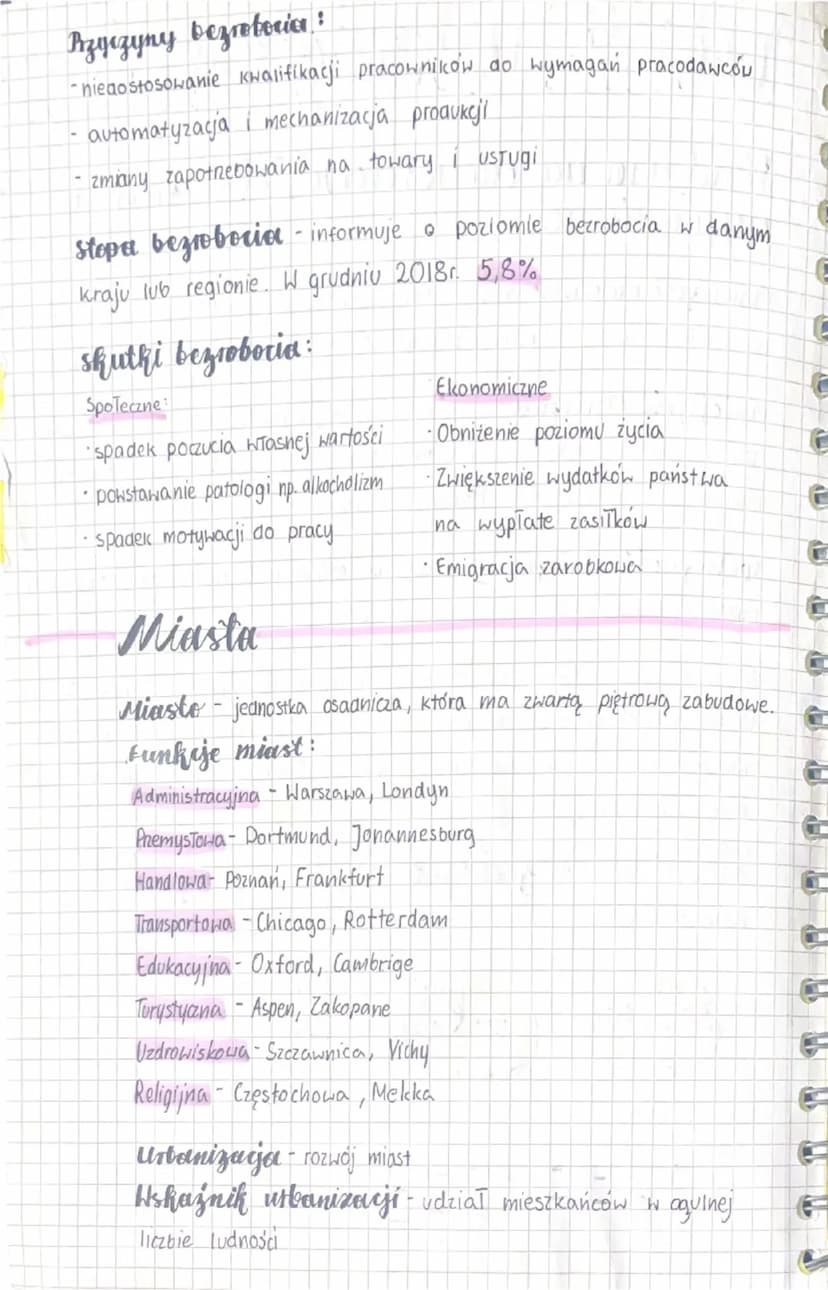 Przyczyny bezrobocia:
- niedostosowanie kwalifikacji pracowników do wymagań pracodawców
- automatyzacja i mechanizacja produkcji
- zmiany zapotrzebowania na towary i usługi
Stopa bezrobocia - informuje o poziomie bezrobocia w danym
kraju lub regionie. W grudniu 2018r. 5,8%
skutki bezrobocia:
Społeczne:
· spadek poczucia własnej wartości
· powstawanie patologi np. alkocholizm
· spadek motywacji do pracy
Ekonomiczne
· Obniżenie poziomu życia
· Zwiększenie wydatków państwa
na wypłate zasiłków
· Emigracja zarobkowa
Miasta
Miasto - jednostka osadnicza, która ma zwartą piętrową zabudowe.
Funkcje miast:
Administracyjna - Warszawa, Londyn
Przemysłowa - Dortmund, Johannesburg
Handlowa - Poznań, Frankfurt
Transportowa - Chicago, Rotterdam
Edukacyjna - Oxford, Cambrige
Turystyczna - Aspen, Zakopane
Uzdrowiskowa - Szczawnica, Vichy
Religijna - Częstochowa, Mekka
Urbanizacja - rozwój miast
Wskaźnik urbanizacji - udział mieszkańców w ogulnej
liczbie ludności